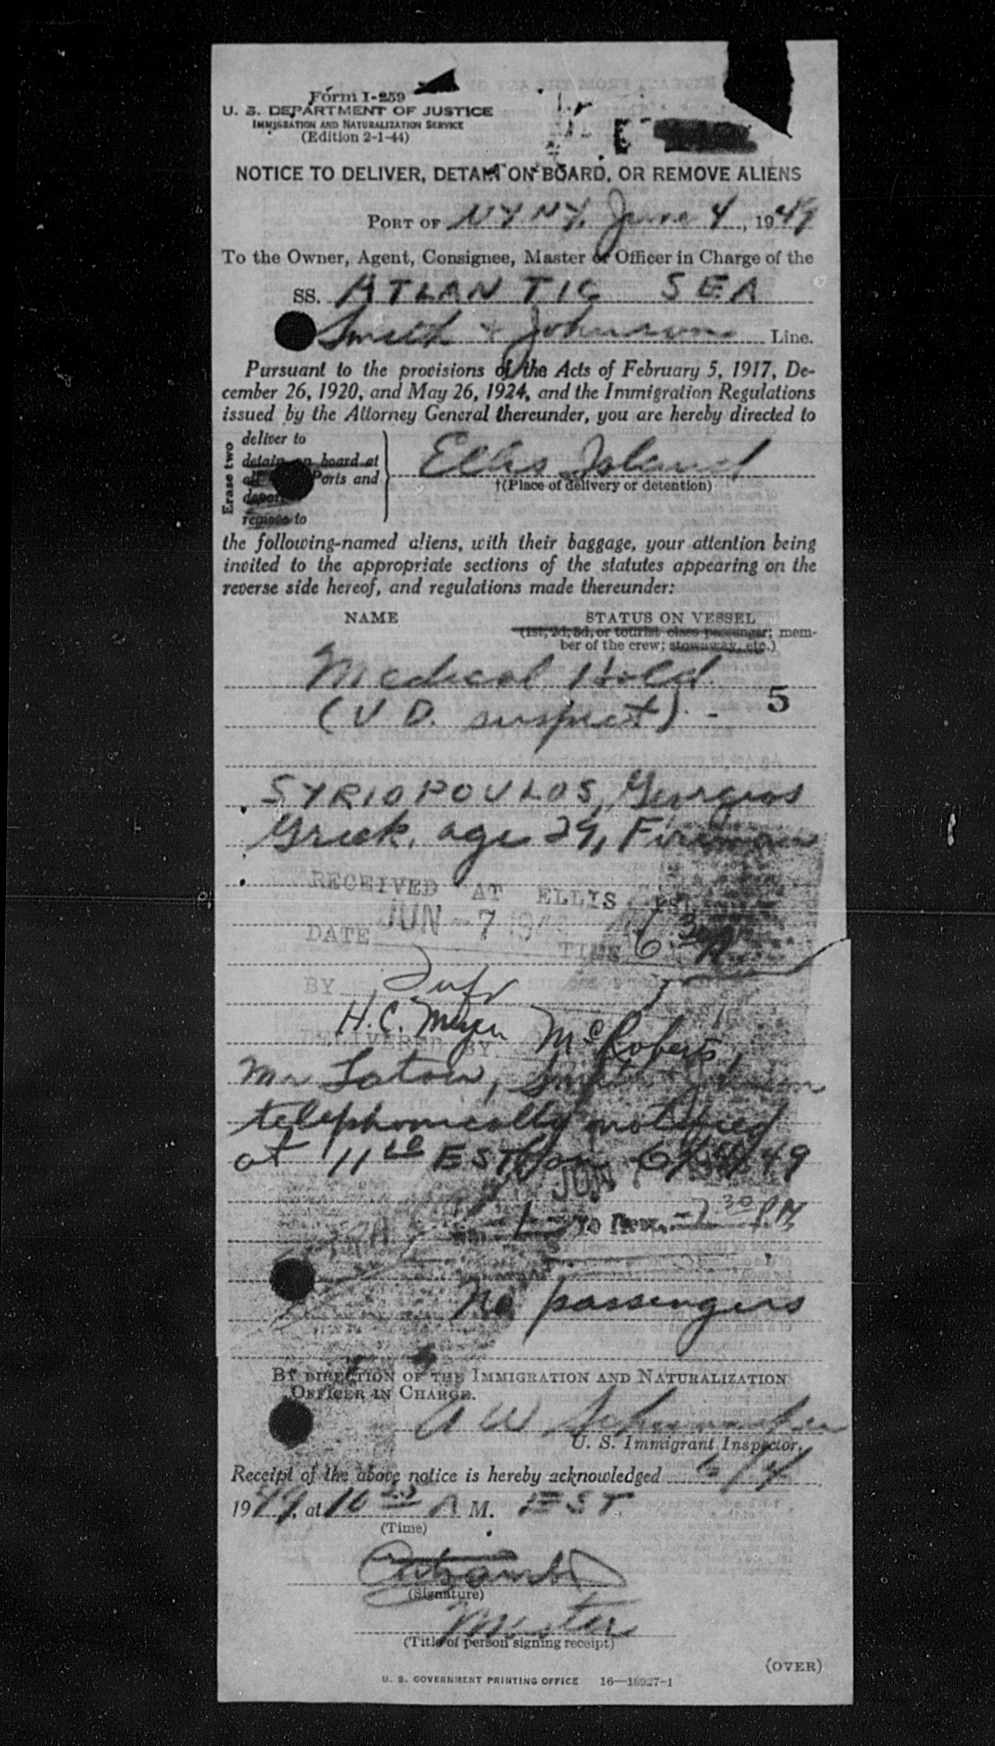 Form I-259
U. S. DEPARTMENT OF JUSTICE
IMMIGRATION AND NATURALIZATION SERVICE
(Edition 2-1-44)
NOTICE TO DELIVER, DETAIN ON BOARD, OR REMOVE ALIENS
PORT OF NY NY, June 4, 1949
To the Owner, Agent, Consignee, Master or Officer in Charge of the
SS. ATLANTIC SEA
Smith & Johnson Line.
Pursuant to the provisions of the Acts of February 5, 1917, De-
cember 26, 1920, and May 26, 1924, and the Immigration Regulations
issued by the Attorney General thereunder, you are hereby directed to
Erase two
deliver to
detain on board at
all Ports and
deport
remove to
Ellis Island
†(Place of delivery or detention)
the following-named aliens, with their baggage, your attention being
invited to the appropriate sections of the statutes appearing on the
reverse side hereof, and regulations made thereunder:
NAME STATUS ON VESSEL
(1st, 2d, 3d, or tourist class passenger; mem-
ber of the crew; stowaway, etc.)
Medical Hold
5
(V D. suspect) -
SYRIOPOULOS, Georgios
Greek, age 29, Fireman
RECEIVED AT ELLIS ISL
DATE JUN - 7 TIME 6
BY
H.C. Meyer McRoberts,
DELIVERED BY
Mr Smith & Johnson
telephonically notified
at 11 EST on 6/4/49
JUN
30 PM
No passengers
BY DIRECTION OF THE IMMIGRATION AND NATURALIZATION
OFFICER IN CHARGE.
A W
U. S. Immigrant Inspector.
Receipt of the above notice is hereby acknowledged 6/4
1949, at 10 A M. EST
(Time)
(Signature)
Master
(Title of person signing receipt)
(OVER)
U. S. GOVERNMENT PRINTING OFFICE 16—18927-1